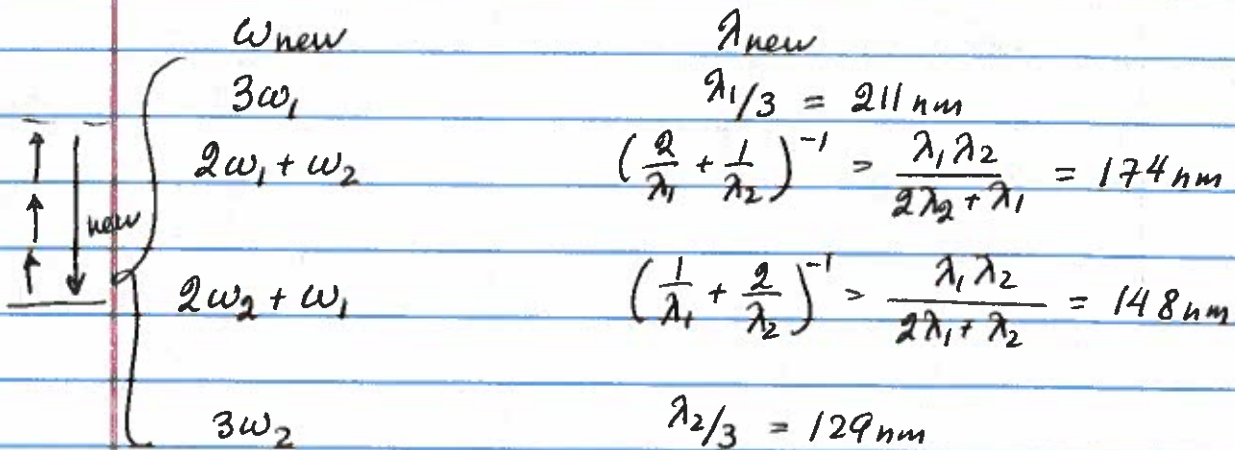 ω_new λ_new
3ω₁ λ₁/3 = 211 nm
2ω₁ + ω₂ (2/λ₁ + 1/λ₂)⁻¹ = λ₁λ₂/(2λ₂ + λ₁) = 174 nm
new
2ω₂ + ω₁ (1/λ₁ + 2/λ₂)⁻¹ = λ₁λ₂/(2λ₁ + λ₂) = 148 nm
3ω₂ λ₂/3 = 129 nm